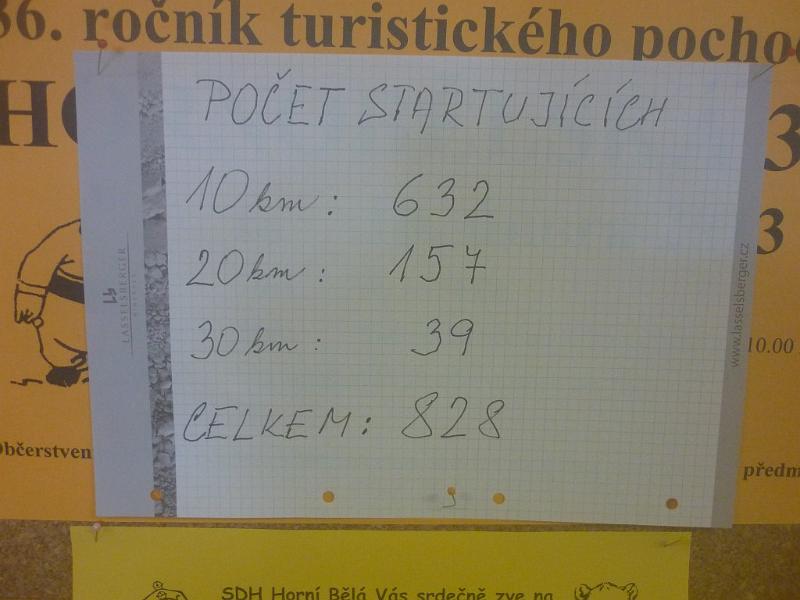 36. ročník turistického pochod
HO
3
POČET STARTUJÍCÍCH
10 km: 632
20 km: 157
30 km: 39
CELKEM: 828
LASSELSBERGER
www.lasselsberger.cz
3
10.00
Občerstven
předm
SDH Horní Bělá Vás srdečně zve na